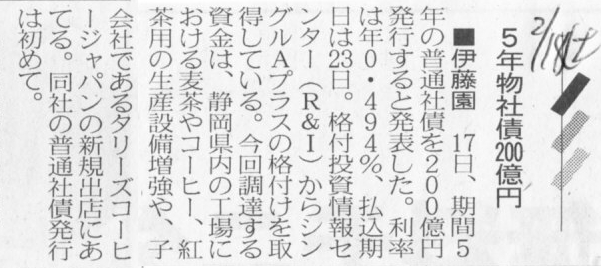 2/18(土
5年物社債200億円
■伊藤園 17日、期間5
年の普通社債を200億円
発行すると発表した。利率
は年0・494%、払込期
日は23日。格付投資情報セ
ンター(R&I)からシン
グルAプラスの格付けを取
得している。今回調達する
資金は、静岡県内の工場に
おける麦茶やコーヒー、紅
茶用の生産設備増強や、子
会社であるタリーズコーヒ
ージャパンの新規出店にあ
てる。同社の普通社債発行
は初めて。